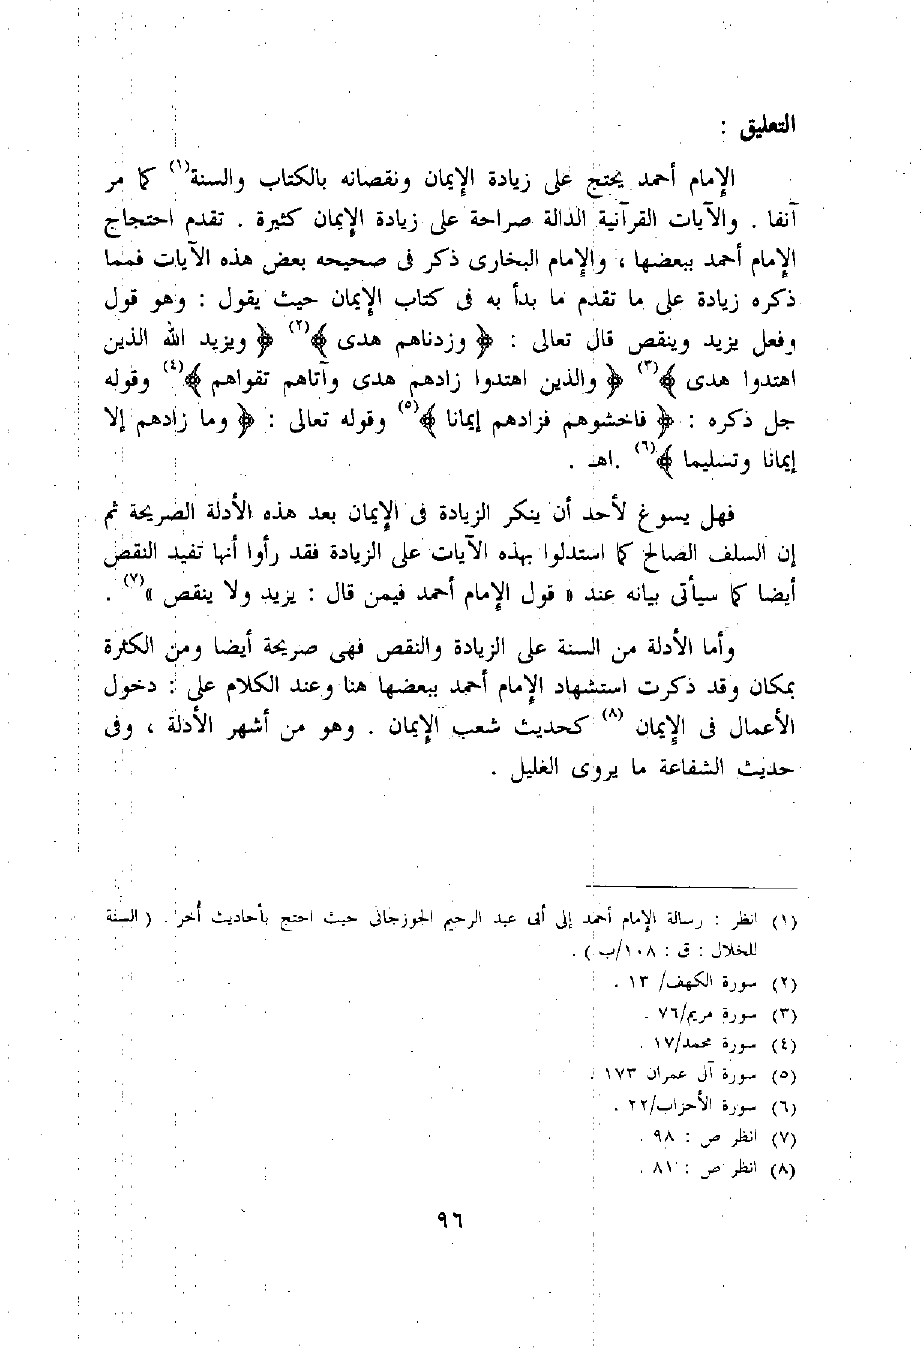 التعليق :
الإمام أحمد يحتج على زيادة الإيمان ونقصانه بالكتاب والسنة(١) كما مر
آنفا . والآيات القرآنية الدالة صراحة على زيادة الإيمان كثيرة . تقدم احتجاج
الإمام أحمد ببعضها ، والإمام البخارى ذكر فى صحيحه بعض هذه الآيات فمما
ذكره زيادة على ما تقدم ما بدأ به فى كتاب الإيمان حيث يقول : وهو قول
وفعل يزيد وينقص قال تعالى : ﴿ وزدناهم هدى ﴾(٢) ﴿ ويزيد الله الذين
اهتدوا هدى ﴾(٣) ﴿ والذين اهتدوا زادهم هدى وآتاهم تقواهم ﴾(٤) وقوله
جل ذكره : ﴿ فاخشوهم فزادهم إيمانا ﴾(٥) وقوله تعالى : ﴿ وما زادهم إلا
إيمانا وتسليما ﴾(٦) .اهـ .
فهل يسوغ لأحد أن ينكر الزيادة فى الإيمان بعد هذه الأدلة الصريحة ثم
إن السلف الصالح كما استدلوا بهذه الآيات على الزيادة فقد رأوا أنها تفيد النقص
أيضا كما سيأتى بيانه عند « قول الإمام أحمد فيمن قال : يزيد ولا ينقص »(٧) .
وأما الأدلة من السنة على الزيادة والنقص فهى صريحة أيضا ومن الكثرة
بمكان وقد ذكرت استشهاد الإمام أحمد ببعضها هنا وعند الكلام على : دخول
الأعمال فى الإيمان (٨) كحديث شعب الإيمان . وهو من أشهر الأدلة ، وفى
حديث الشفاعة ما يروى الغليل .
(١) انظر : رسالة الإمام أحمد إلى أبى عبد الرحيم الجوزجانى حيث احتج بأحاديث أخر . ( السنة
للخلال : ق : ١٠٨/ب ) .
(٢) سورة الكهف/ ١٣ .
(٣) سورة مريم/٧٦ .
(٤) سورة محمد/١٧ .
(٥) سورة آل عمران ١٧٣ .
(٦) سورة الأحزاب/٢٢ .
(٧) انظر ص : ٩٨ .
(٨) انظر ص : ٨١ .
٩٦